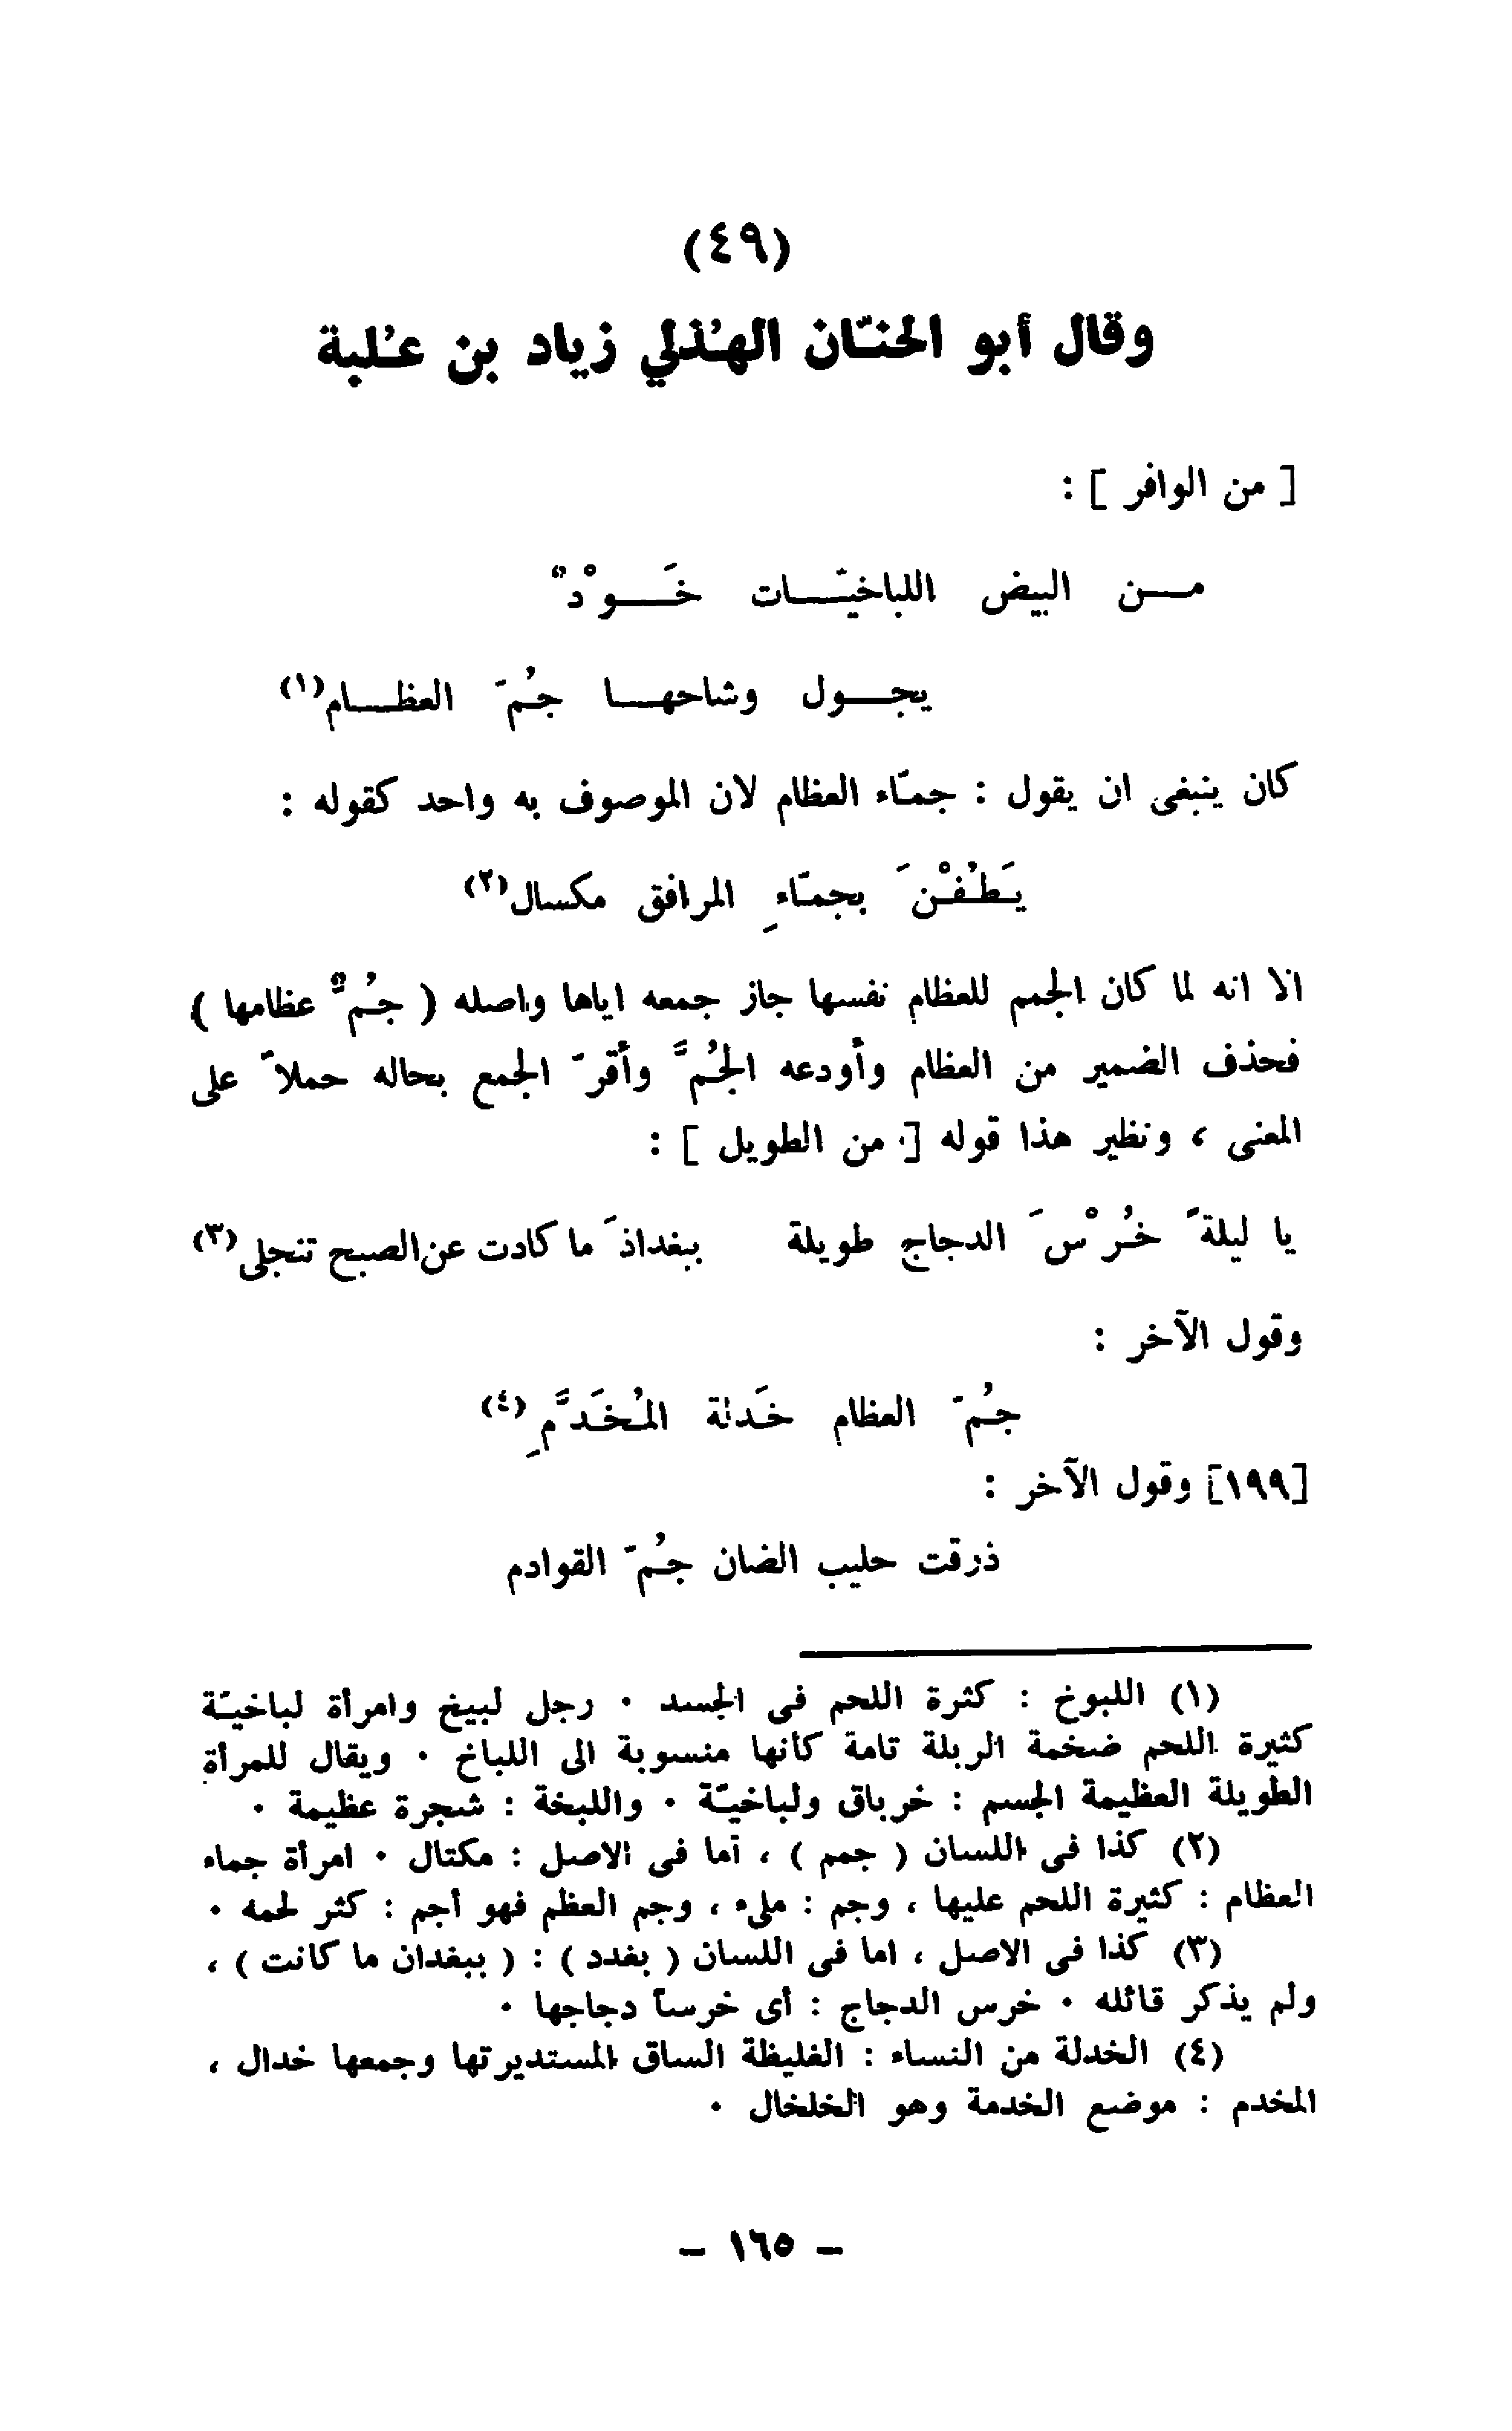 (٤٩)
وقال أبو الحنّان الهُذلي زياد بن عُلبة
[ من الوافر ] :
مـــن البيض اللباخيّـــات خَـــوْدٌ
يجـــول وشاحهـــا جُمّ العظـــام(١)
كان ينبغى ان يقول : جمّاء العظام لان الموصوف به واحد كقوله :
يَطُفْنَ بجمّاءِ المرافق مكسال(٢)
الا انه لما كان الجمم للعظام نفسها جاز جمعه اياها واصله ( جُمٌّ عظامها )
فحذف الضمير من العظام وأودعه الجُمَّ وأقرّ الجمع بحاله حملاً على
المعنى ، ونظير هذا قوله [ من الطويل ] :
يا ليلةً خُرْسَ الدجاج طويلة ببغداذَ ما كادت عن الصبح تنجلى(٣)
وقول الآخر :
جُمّ العظام خَدلة المُخَدَّمِ(٤)
[١٩٩] وقول الآخر :
ذرقت حليب الضان جُمّ القوادم
(١) اللبوخ : كثرة اللحم فى الجسد ٠ رجل لبيخ وامرأة لباخيّة
كثيرة اللحم ضخمة الربلة تامة كانها منسوبة الى اللباخ ٠ ويقال للمرأة
الطويلة العظيمة الجسم : خرباق ولباخيّة ٠ واللبخة : شجرة عظيمة ٠
(٢) كذا فى اللسان ( جمم ) ، أما فى الاصل : مكتال ٠ امرأة جماء
العظام : كثيرة اللحم عليها ، وجم : ملىء ، وجم العظم فهو أجم : كثر لحمه ٠
(٣) كذا فى الاصل ، اما فى اللسان ( بغدد ) : ( ببغدان ما كانت ) ،
ولم يذكر قائله ٠ خرس الدجاج : أى خرساً دجاجها ٠
(٤) الخدلة من النساء : الغليظة الساق المستديرتها وجمعها خدال ،
المخدم : موضع الخدمة وهو الخلخال ٠
- ١٦٥ -